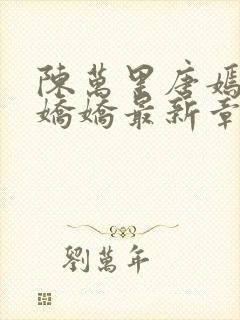 陳萬里唐嫣
嬌嬌最新章
劉萬年